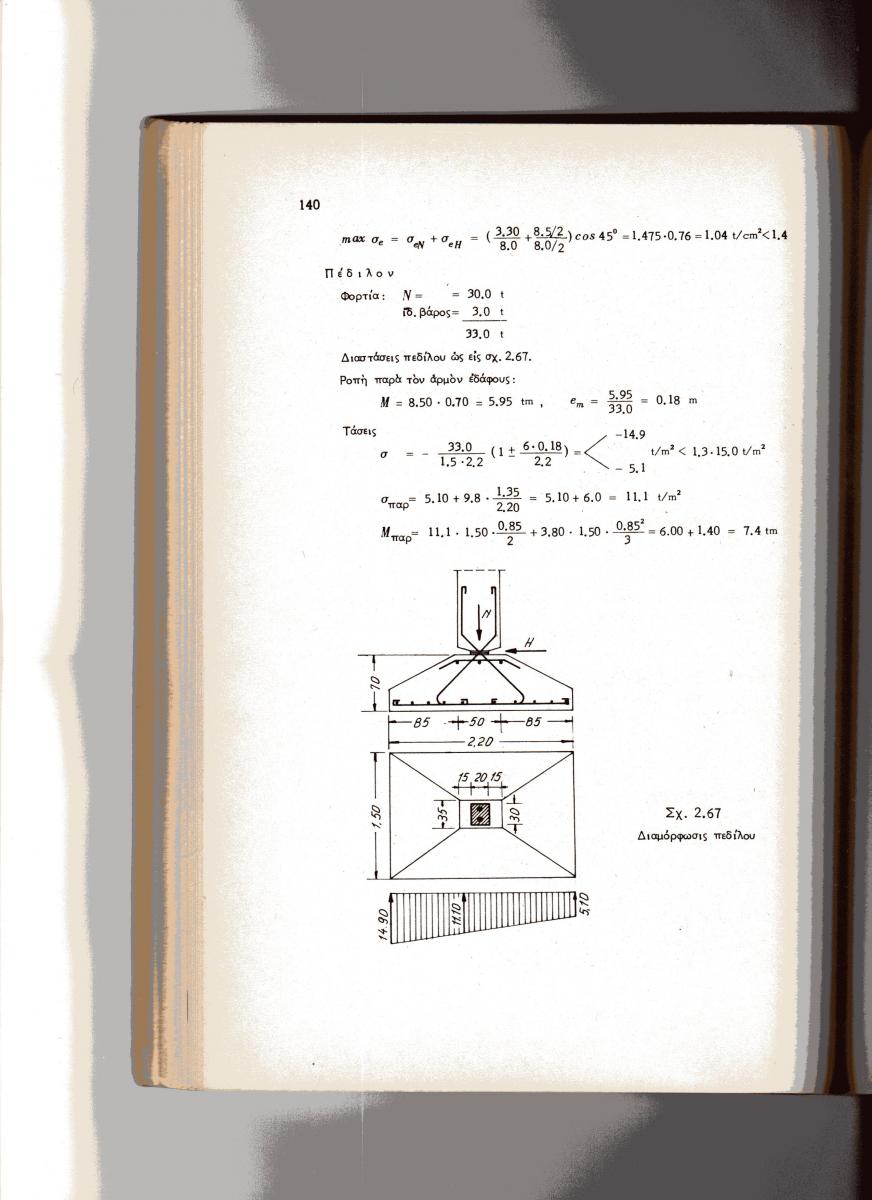 140
max σₑ = σₑN + σₑH = ( 3.30/8.0 + 8.5/2/8.0/2 ) cos 45° = 1.475·0.76 = 1.04 t/cm² < 1.4
Πέδιλον
Φορτία: N = = 30.0 t
ἴδ. βάρος= 3.0 t
33.0 t
Διαστάσεις πεδίλου ὡς εἰς σχ. 2.67.
Ροπὴ παρὰ τὸν ἁρμὸν ἐδάφους:
M = 8.50 · 0.70 = 5.95 tm , eₘ = 5.95/33.0 = 0.18 m
Τάσεις
σ = - 33.0/1.5·2.2 (1 ± 6·0.18/2.2) = < -14.9 - 5.1 t/m² < 1.3·15.0 t/m²
σπαρ= 5.10 + 9.8 · 1.35/2.20 = 5.10 + 6.0 = 11.1 t/m²
Mπαρ= 11.1 · 1.50 · 0.85/2 + 3.80 · 1.50 · 0.85²/3 = 6.00 + 1.40 = 7.4 tm
N
H
70
85 50 85
2,20
15 20 15
1,50
35
30
Σχ. 2.67
Διαμόρφωσις πεδίλου
14.90
11.10
5,10